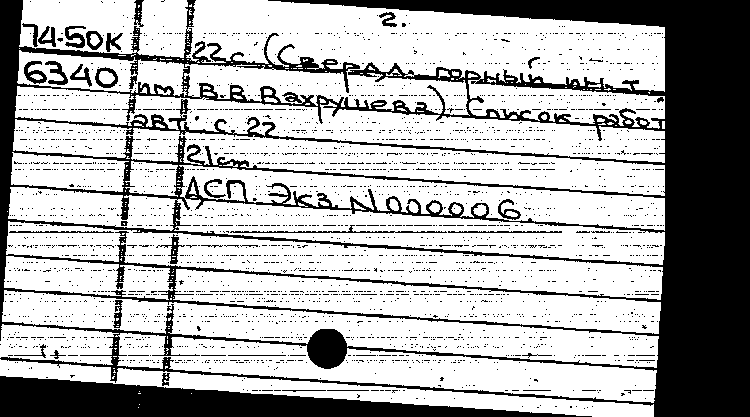 2.
74-50К 22с. (Свердл. горный ин-т
6340 им. В.В. Вахрушева). Список работ
авт.: с. 22
21 cm.
ДСП. Экз. N 000006.